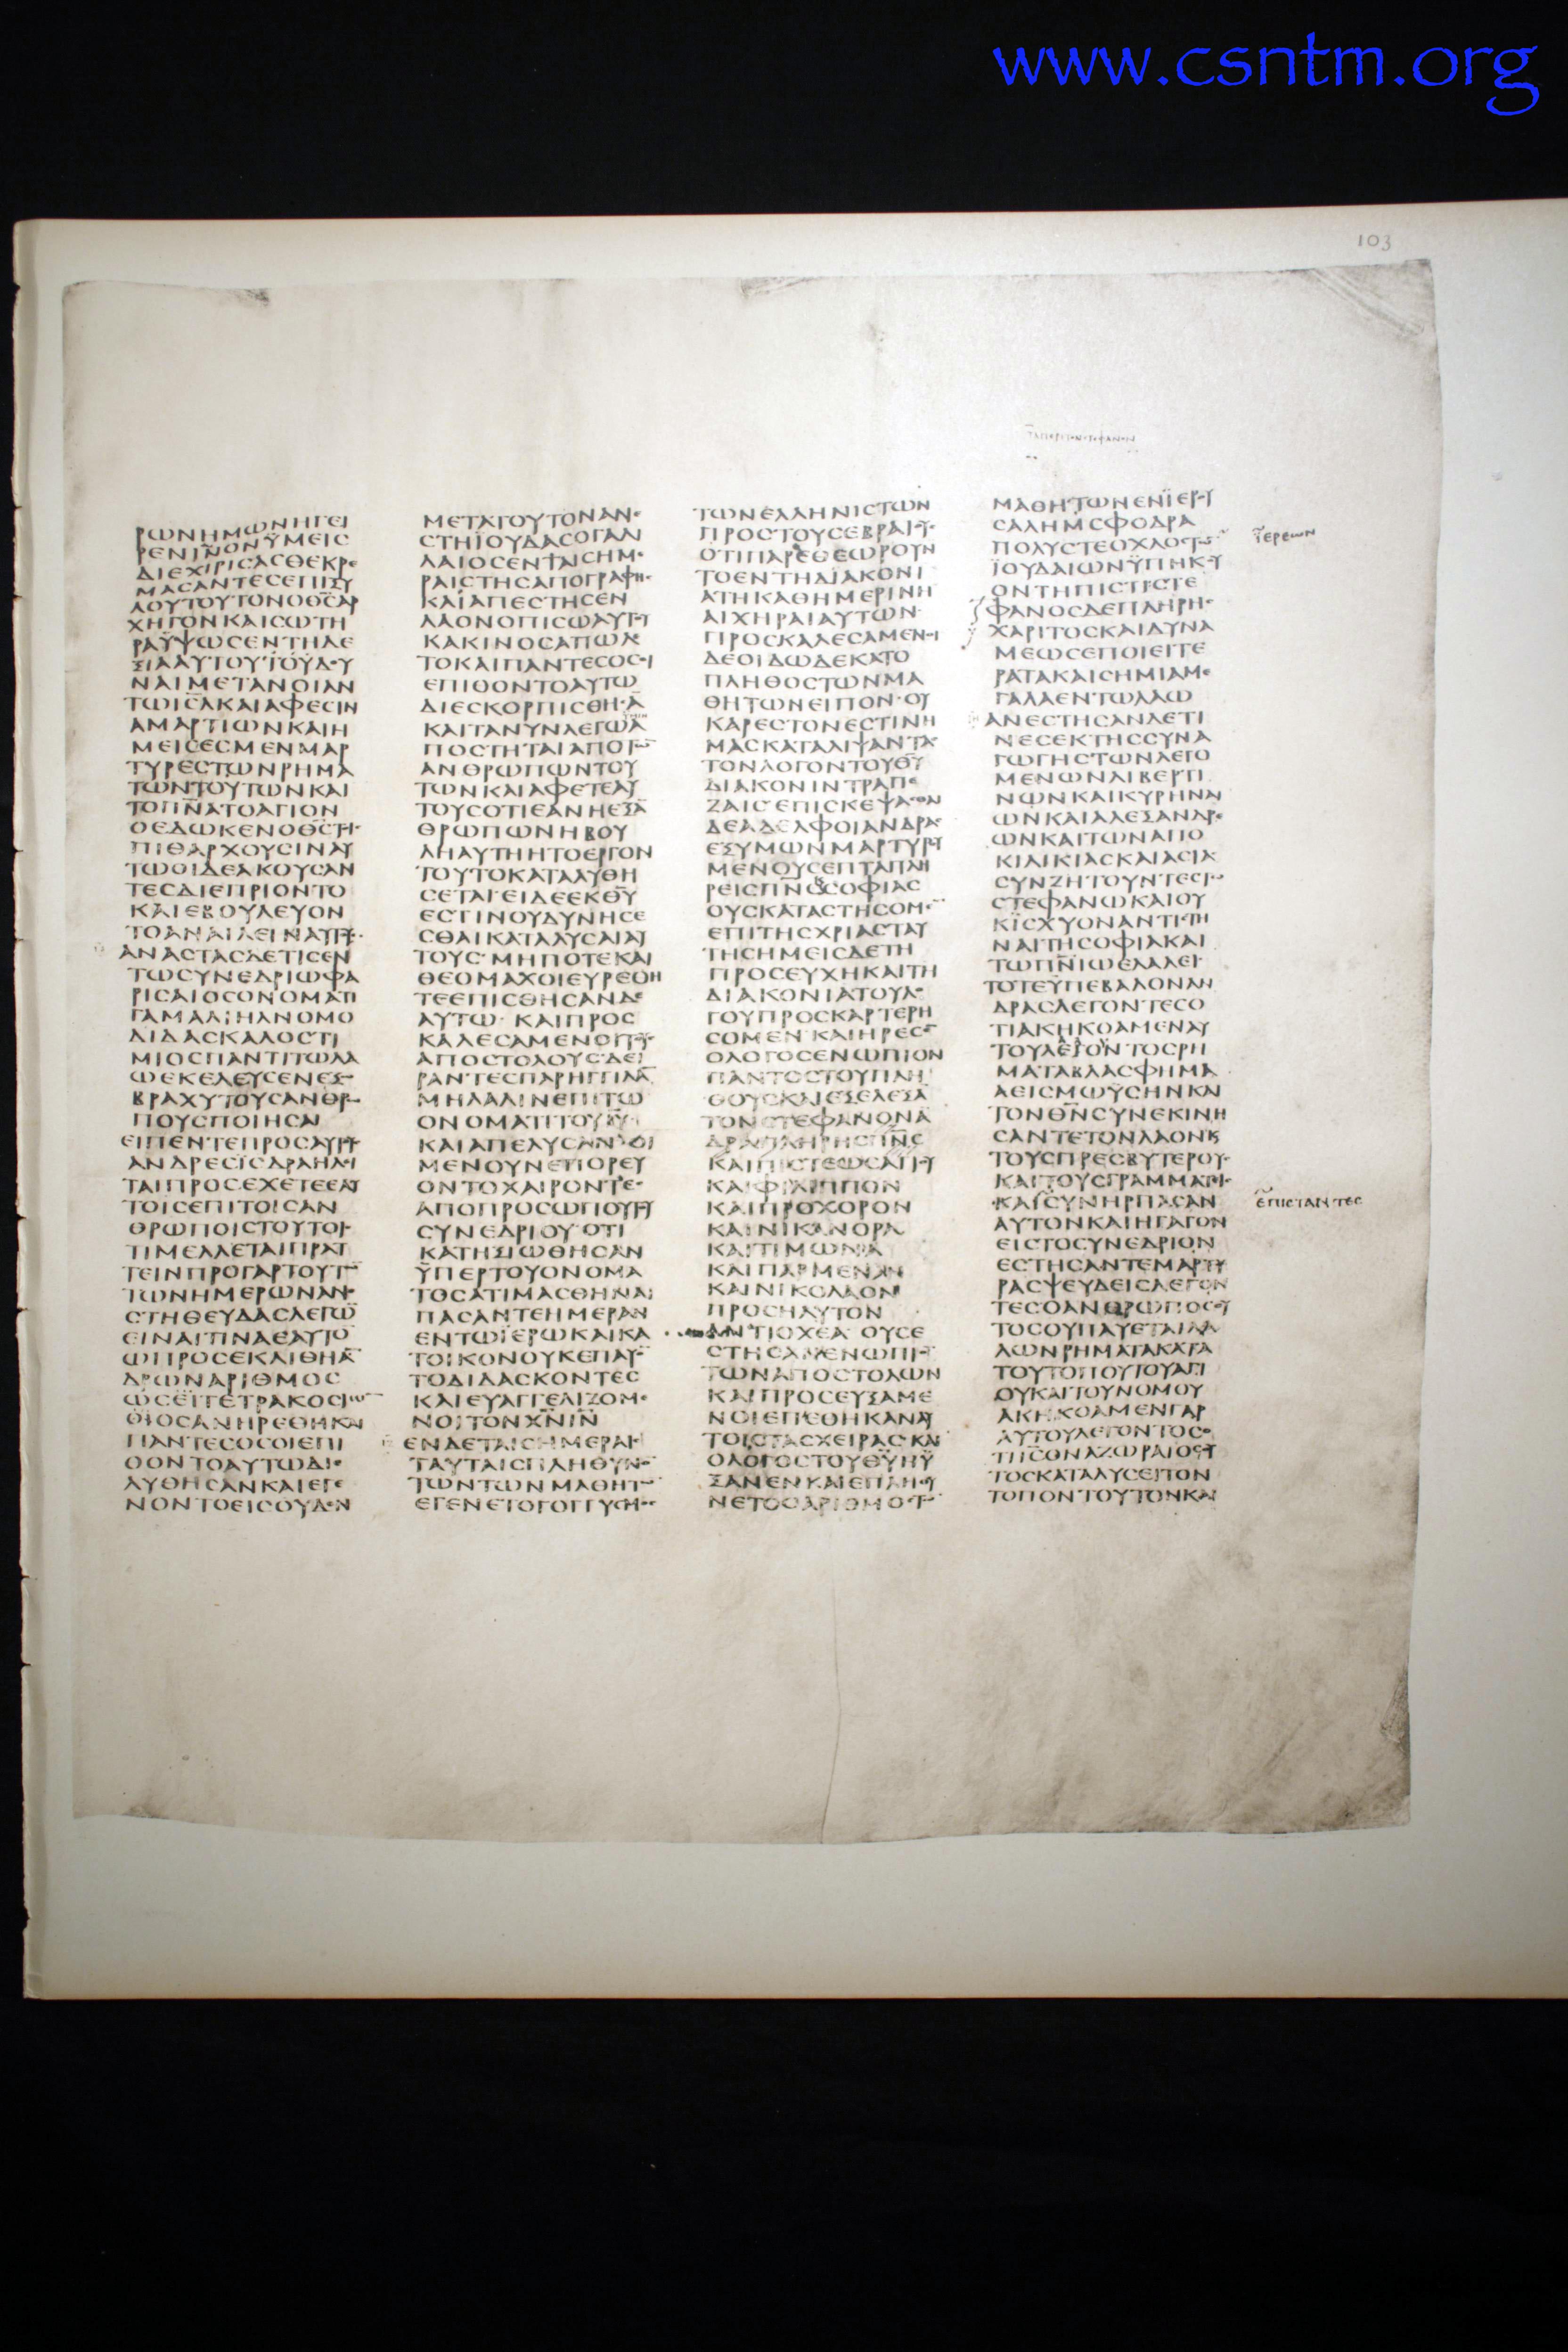 www.csntm.org
103
ΡΩΝΗΜΩΝΗΓΕΙ
ΡΕΝΙΝΟΝΫΜΕΙC
ΔΙΕΧΙΡΙCΑCΘΕΚΡΕ
ΜΑCΑΝΤΕCΕΠΙΞΥ
ΛΟΥΤΟΥΤΟΝΟΘCΑΡ
ΧΗΓΟΝΚΑΙCΩΤΗ
ΡΑΫΨΩCΕΝΤΗΔΕ
ΞΙΑΑΥΤΟΥΤΟΥΔΟΥ
ΝΑΙΜΕΤΑΝΟΙΑΝ
ΤΩΙCΛΚΑΙΑΦΕCΙΝ
ΑΜΑΡΤΙΩΝΚΑΙΗ
ΜΕΙCΕCΜΕΝΜΑΡ
ΤΥΡΕCΤΩΝΡΗΜΑ
ΤΩΝΤΟΥΤΩΝΚΑΙ
ΤΟΠΝΑΤΟΑΓΙΟΝ
ΟΕΔΩΚΕΝΟΘCΤΟΙ
ΠΙΘΑΡΧΟΥCΙΝΑΥ
ΤΩΟΙΔΕΑΚΟΥCΑΝ
ΤΕCΔΙΕΠΡΙΟΝΤΟ
ΚΑΙΕΒΟΥΛΕΥΟΝ
ΤΟΑΝΑΙΛΕΙΝΑΥΤΟΥ
ΑΝΑCΤΑCΔΕΤΙCΕΝ
ΤΩCΥΝΕΔΡΙΩΦΑ
ΡΙCΑΙΟCΟΝΟΜΑΤΙ
ΓΑΜΑΛΙΗΛΝΟΜΟ
ΔΙΔΑCΚΑΛΟCΤΙ
ΜΙΟCΠΑΝΤΙΤΩΛΑ
ΩΕΚΕΛΕΥCΕΝΕΞΩ
ΒΡΑΧΥΤΟΥCΑΝΘΡΩ
ΠΟΥCΠΟΙΗCΑΙ
ΕΙΠΕΝΤΕΠΡΟCΑΥΤΟΥ
ΑΝΔΡΕCΪCΡΑΗΛΙ
ΤΑΙΠΡΟCΕΧΕΤΕΕΑΥ
ΤΟΙCΕΠΙΤΟΙCΑΝ
ΘΡΩΠΟΙCΤΟΥΤΟΙ
ΤΙΜΕΛΛΕΤΑΙΠΡΑΤ
ΤΕΙΝΠΡΟΓΑΡΤΟΥΤΩ
ΤΩΝΗΜΕΡΩΝΑΝΕ
CΤΗΘΕΥΔΑCΛΕΓΩ
ΕΙΝΑΙΤΙΝΑΕΑΥΤΟ
ΩΠΡΟCΕΚΛΙΘΗΑ
ΔΡΩΝΑΡΙΘΜΟC
ΩCΕΪΤΕΤΡΑΚΟCΙΩ
ΟΪΟCΑΝΗΡΕΘΗΚΑΙ
ΠΑΝΤΕCΟCΟΙΕΠΙ
ΘΟΝΤΟΑΥΤΩΔΙΕ
ΛΥΘΗCΑΝΚΑΙΕΓΕ
ΝΟΝΤΟΕΙCΟΥΔΕΝ
ΜΕΤΑΤΟΥΤΟΝΑΝΕ
CΤΗΪΟΥΔΑCΟΓΑΛΙ
ΛΑΙΟCΕΝΤΑΙCΗΜΕ
ΡΑΙCΤΗCΑΠΟΓΡΑΦΗC
ΚΑΙΑΠΕCΤΗCΕΝ
ΛΑΟΝΟΠΙCΩΑΥΤΟΥ
ΚΑΚΙΝΟCΑΠΩΛΕ
ΤΟΚΑΙΠΑΝΤΕCΟCΟΙ
ΕΠΙΘΟΝΤΟΑΥΤΩ
ΔΙΕCΚΟΡΠΙCΘΗCΑ
ΚΑΙΤΑΝΥΝΛΕΓΩΑ
ΠΟCΤΗΤΑΙΑΠΟΤΩ
ΑΝΘΡΩΠΩΝΤΟΥ
ΤΩΝΚΑΙΑΦΕΤΕΑΥ
ΤΟΥCΟΤΙΕΑΝΗΕΞΑ
ΘΡΩΠΩΝΗΒΟΥ
ΛΗΑΥΤΗΗΤΟΕΡΓΟΝ
ΤΟΥΤΟΚΑΤΑΛΥΘΗ
CΕΤΑΙΕΙΔΕΕΚΘΥ
ΕCΤΙΝΟΥΔΥΝΗCΕ
CΘΑΙΚΑΤΑΛΥCΑΙΑΥ
ΤΟΥC·ΜΗΠΟΤΕΚΑΙ
ΘΕΟΜΑΧΟΙΕΥΡΕΘΗ
ΤΕΕΠΙCΘΗCΑΝΔΕ
ΑΥΤΩ·ΚΑΙΠΡΟC
ΚΑΛΕCΑΜΕΝΟΙΤΟΥ
ΑΠΟCΤΟΛΟΥCΔΕΙ
ΡΑΝΤΕCΠΑΡΗΓΓΙΛΑ
ΜΗΛΑΛΙΝΕΠΙΤΩ
ΟΝΟΜΑΤΙΤΟΥΙΥ
ΚΑΙΑΠΕΛΥCΑΝΟΙ
ΜΕΝΟΥΝΕΠΟΡΕΥ
ΟΝΤΟΧΑΙΡΟΝΤΕC
ΑΠΟΠΡΟCΩΠΟΥΤΟΥ
CΥΝΕΔΡΙΟΥΟΤΙ
ΚΑΤΗΞΙΩΘΗCΑΝ
ΫΠΕΡΤΟΥΟΝΟΜΑ
ΤΟCΑΤΙΜΑCΘΗΝΑΙ
ΠΑCΑΝΤΕΗΜΕΡΑΝ
ΕΝΤΩΪΕΡΩΚΑΙΚΑ
ΤΟΙΚΟΝΟΥΚΕΠΑΥ
ΤΟΔΙΔΑCΚΟΝΤΕC
ΚΑΙΕΥΑΓΓΕΛΙΖΟΜΕ
ΝΟΙΤΟΝΧΝΙΝ
ΕΝΔΕΤΑΙCΗΜΕΡΑΙ
ΤΑΥΤΑΙCΠΛΗΘΥΝΟ
ΤΩΝΤΩΝΜΑΘΗΤΩ
ΕΓΕΝΕΤΟΓΟΓΓΥCΜΟC
ΤΩΝΕΛΛΗΝΙCΤΩΝ
ΠΡΟCΤΟΥCΕΒΡΑΙΟΥ
ΟΤΙΠΑΡΕΘΕΩΡΟΥΝ
ΤΟΕΝΤΗΔΙΑΚΟΝΙ
ΑΤΗΚΑΘΗΜΕΡΙΝΗ
ΑΙΧΗΡΑΙΑΥΤΩΝ
ΠΡΟCΚΑΛΕCΑΜΕΝΟΙ
ΔΕΟΙΔΩΔΕΚΑΤΟ
ΠΛΗΘΟCΤΩΝΜΑ
ΘΗΤΩΝΕΙΠΟΝ·ΟΥ
ΚΑΡΕCΤΟΝΕCΤΙΝΗ
ΜΑCΚΑΤΑΛΙΨΑΝΤΑ
ΤΟΝΛΟΓΟΝΤΟΥΘΥ
ΔΙΑΚΟΝΙΝΤΡΑΠΕ
ΖΑΙCΕΠΙCΚΕΨΑCΘΑΙ
ΔΕΑΔΕΛΦΟΙΑΝΔΡΑ
ΕΞΥΜΩΝΜΑΡΤΥΡΟΥ
ΜΕΝΟΥCΕΠΤΑΠΛΗ
ΡΕΙCΠΝCΚCΟΦΙΑC
ΟΥCΚΑΤΑCΤΗCΟΜΕ
ΕΠΙΤΗCΧΡΙΑCΤΑΥ
ΤΗCΗΜΕΙCΔΕΤΗ
ΠΡΟCΕΥΧΗΚΑΙΤΗ
ΔΙΑΚΟΝΙΑΤΟΥΛΟ
ΓΟΥΠΡΟCΚΑΡΤΕΡΗ
CΟΜΕΝ·ΚΑΙΗΡΕCΕ
ΟΛΟΓΟCΕΝΩΠΙΟΝ
ΠΑΝΤΟCΤΟΥΠΛΗ
ΘΟΥCΚΑΙΕΞΕΛΕΞΑ
ΤΟΝCΤΕΦΑΝΟΝΑ
ΔΡΑΠΛΗΡΗCΠΙC
ΚΑΙΦΙΛΙΠΠΟΝ
ΚΑΙΠΡΟΧΟΡΟΝ
ΚΑΙΝΙΚΑΝΟΡΑ
ΚΑΙΤΙΜΩΝΑ
ΚΑΙΠΑΡΜΕΝΑΝ
ΚΑΙΝΙΚΟΛΑΟΝ
ΠΡΟCΗΛΥΤΟΝ
ΑΝΤΙΟΧΕΑ ΟΥCΕ
CΤΗCΑΝΕΝΩΠΙΟ
ΤΩΝΑΠΟCΤΟΛΩΝ
ΚΑΙΠΡΟCΕΥΞΑΜΕ
ΝΟΙΕΠΕΘΗΚΑΝΑΥ
ΤΟΙCΤΑCΧΕΙΡΑCΚΑΙ
ΟΛΟΓΟCΤΟΥΘΥΗΥ
ΞΑΝΕΝΚΑΙΕΠΛΗΘΥ
ΝΕΤΟΟΑΡΙΘΜΟCΤΩ
ΜΑΘΗΤΩΝΕΝΪΕΡΟΥ
CΑΛΗΜCΦΟΔΡΑ
ΠΟΛΥCΤΕΟΧΛΟCΤΩ
ΪΟΥΔΑΙΩΝΫΠΗΚΟΥ
ΟΝΤΗΠΙCΤΙCΤΕ
ΦΑΝΟCΔΕΠΛΗΡΗC
ΧΑΡΙΤΟCΚΑΙΔΥΝΑ
ΜΕΩCΕΠΟΙΕΙΤΕ
ΡΑΤΑΚΑΙCΗΜΙΑΜΕ
ΓΑΛΑΕΝΤΩΛΑΩ
ΑΝΕCΤΗCΑΝΔΕΤΙ
ΝΕCΕΚΤΗCCΥΝΑ
ΓΩΓΗCΤΩΝΛΕΓΟ
ΜΕΝΩΝΛΙΒΕΡΤΙ
ΝΩΝΚΑΙΚΥΡΗΝΑΙ
ΩΝΚΑΙΑΛΕΞΑΝΔΡΕ
ΩΝΚΑΙΤΩΝΑΠΟ
ΚΙΛΙΚΙΑCΚΑΙΑCΙΑ
CΥΝΖΗΤΟΥΝΤΕCΤΩ
CΤΕΦΑΝΩΚΑΙΟΥ
ΚΪCΧΥΟΝΑΝΤΙCΤΗ
ΝΑΙΤΗCΟΦΙΑΚΑΙ
ΤΩΠΝΙΩΕΛΑΛΕΙ
ΤΟΤΕΫΠΕΒΑΛΟΝΑΝ
ΔΡΑCΛΕΓΟΝΤΕCΟ
ΤΙΑΚΗΚΟΑΜΕΝΑΥ
ΤΟΥΛΕΓΟΝΤΟCΡΗ
ΜΑΤΑΒΛΑCΦΗΜΑ
ΑΕΙCΜΩΫCΗΝΚΑΙ
ΤΟΝΘΝCΥΝΕΚΙΝΗ
CΑΝΤΕΤΟΝΛΑΟΝΚ
ΤΟΥCΠΡΕCΒΥΤΕΡΟΥ
ΚΑΙΤΟΥCΓΡΑΜΜΑΤΙ
ΚΑΙCΥΝΗΡΠΑCΑΝ
ΑΥΤΟΝΚΑΙΗΓΑΓΟΝ
ΕΙCΤΟCΥΝΕΔΡΙΟΝ
ΕCΤΗCΑΝΤΕΜΑΡΤΥ
ΡΑCΨΕΥΔΕΙCΛΕΓΟΝ
ΤΕCΟΑΝΘΡΩΠΟCΟΥ
ΤΟCΟΥΠΑΥΕΤΑΙΛΑ
ΛΩΝΡΗΜΑΤΑΚΑΤΑ
ΤΟΥΤΟΠΟΥΤΟΥΑΓΙ
ΟΥΚΑΙΤΟΥΝΟΜΟΥ
ΑΚΗΚΟΑΜΕΝΓΑΡ
ΑΥΤΟΥΛΕΓΟΝΤΟCΟ
ΤΙΙCΟΝΑΖΩΡΑΙΟCΟΥ
ΤΟCΚΑΤΑΛΥCΕΙΤΟΝ
ΤΟΠΟΝΤΟΥΤΟΝΚΑΙ
ΪΕΡΕΩΝ
ΕΠΙCΤΑΝΤΕC